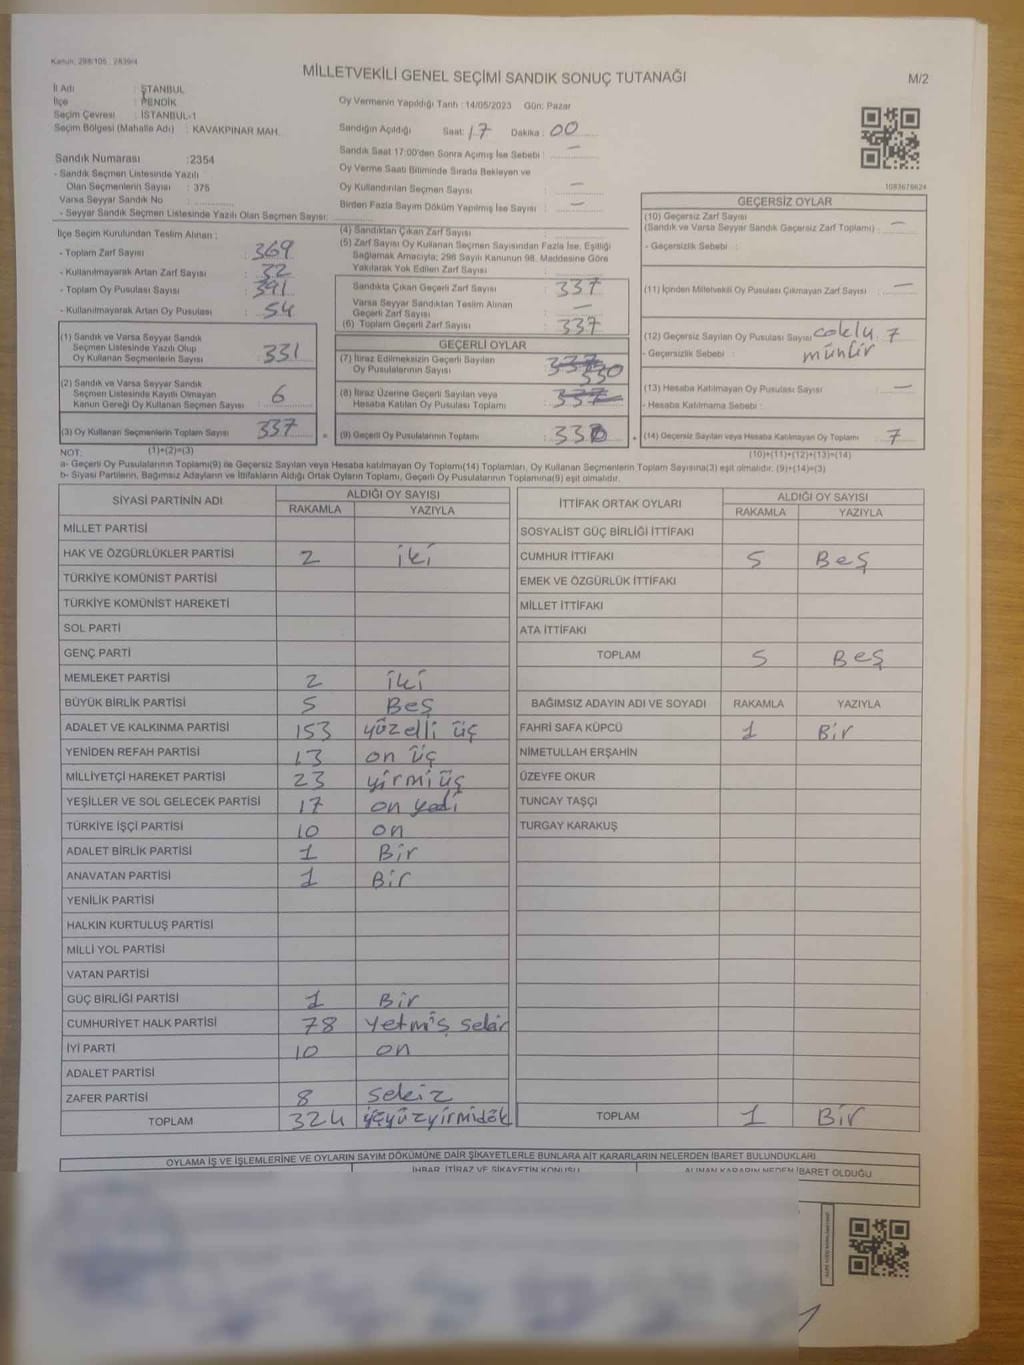 Kanun: 298/105 ; 2839/4
MİLLETVEKİLİ GENEL SEÇİMİ SANDIK SONUÇ TUTANAĞI
M/2
İl Adı : İSTANBUL
İlçe : PENDİK
Seçim Çevresi : İSTANBUL-1
Seçim Bölgesi (Mahalle Adı) : KAVAKPINAR MAH.
Sandık Numarası :2354
- Sandık Seçmen Listesinde Yazılı
Olan Seçmenlerin Sayısı : 375
Varsa Seyyar Sandık No :
- Seyyar Sandık Seçmen Listesinde Yazılı Olan Seçmen Sayısı:
Oy Vermenin Yapıldığı Tarih :14/05/2023 Gün: Pazar
Sandığın Açıldığı Saat: 17 Dakika : 00
Sandık Saat 17:00'den Sonra Açımış İse Sebebi : —
Oy Verme Saati Bitiminde Sırada Bekleyen ve
Oy Kullandırılan Seçmen Sayısı : —
Birden Fazla Sayım Döküm Yapılmış İse Sayısı : —
1083678624
İlçe Seçim Kurulundan Teslim Alınan :
- Toplam Zarf Sayısı : 369
- Kullanılmayarak Artan Zarf Sayısı : 32
- Toplam Oy Pusulası Sayısı : 391
- Kullanılmayarak Artan Oy Pusulası : 54
(1) Sandık ve Varsa Seyyar Sandık
Seçmen Listesinde Yazılı Olup
Oy Kullanan Seçmenlerin Sayısı : 331
(2) Sandık ve Varsa Seyyar Sandık
Seçmen Listesinde Kayıtlı Olmayan
Kanun Gereği Oy Kullanan Seçmen Sayısı : 6
(3) Oy Kullanan Seçmenlerin Toplam Sayısı : 337
(4) Sandıktan Çıkan Zarf Sayısı :
(5) Zarf Sayısı Oy Kullanan Seçmen Sayısından Fazla İse, Eşitliği
Sağlamak Amacıyla; 298 Sayılı Kanunun 98. Maddesine Göre
Yakılarak Yok Edilen Zarf Sayısı :
Sandıkta Çıkan Geçerli Zarf Sayısı : 337
Varsa Seyyar Sandıktan Teslim Alınan
Geçerli Zarf Sayısı : —
(6) Toplam Geçerli Zarf Sayısı : 337
GEÇERLİ OYLAR
(7) İtiraz Edilmeksizin Geçerli Sayılan
Oy Pusulalarının Sayısı : 337 330
(8) İtiraz Üzerine Geçerli Sayılan veya
Hesaba Katılan Oy Pusulası Toplamı : 337
= (9) Geçerli Oy Pusulalarının Toplamı : 330
GEÇERSİZ OYLAR
(10) Geçersiz Zarf Sayısı
(Sandık ve Varsa Seyyar Sandık Geçersiz Zarf Toplamı) : —
- Geçersizlik Sebebi :
(11) İçinden Milletvekili Oy Pusulası Çıkmayan Zarf Sayısı : —
(12) Geçersiz Sayılan Oy Pusulası Sayısı çoklu 7
- Geçersizlik Sebebi : mühür
(13) Hesaba Katılmayan Oy Pusulası Sayısı : —
- Hesaba Katılmama Sebebi :
+ (14) Geçersiz Sayılan veya Hesaba Katılmayan Oy Toplamı : 7
NOT: (1)+(2)=(3)
(10)+(11)+(12)+(13)=(14)
a- Geçerli Oy Pusulalarının Toplamı(9) ile Geçersiz Sayılan veya Hesaba katılmayan Oy Toplamı(14) Toplamları, Oy Kullanan Seçmenlerin Toplam Sayısına(3) eşit olmalıdır. (9)+(14)=(3)
b- Siyasi Partilerin, Bağımsız Adayların ve İttifakların Aldığı Ortak Oyların Toplamı, Geçerli Oy Pusulalarının Toplamına(9) eşit olmalıdır.
SİYASİ PARTİNİN ADI ALDIĞI OY SAYISI
RAKAMLA YAZIYLA
MİLLET PARTİSİ
HAK VE ÖZGÜRLÜKLER PARTİSİ 2 iki
TÜRKİYE KOMÜNİST PARTİSİ
TÜRKİYE KOMÜNİST HAREKETİ
SOL PARTİ
GENÇ PARTİ
MEMLEKET PARTİSİ 2 iki
BÜYÜK BİRLİK PARTİSİ 5 Beş
ADALET VE KALKINMA PARTİSİ 153 yüzelli üç
YENİDEN REFAH PARTİSİ 13 on üç
MİLLİYETÇİ HAREKET PARTİSİ 23 yirmiüç
YEŞİLLER VE SOL GELECEK PARTİSİ 17 on yedi
TÜRKİYE İŞÇİ PARTİSİ 10 on
ADALET BİRLİK PARTİSİ 1 Bir
ANAVATAN PARTİSİ 1 Bir
YENİLİK PARTİSİ
HALKIN KURTULUŞ PARTİSİ
MİLLİ YOL PARTİSİ
VATAN PARTİSİ
GÜÇ BİRLİĞİ PARTİSİ 1 Bir
CUMHURİYET HALK PARTİSİ 78 Yetmiş sekiz
İYİ PARTİ 10 on
ADALET PARTİSİ
ZAFER PARTİSİ 8 sekiz
TOPLAM 324 üçyüzyirmidök
İTTİFAK ORTAK OYLARI ALDIĞI OY SAYISI
RAKAMLA YAZIYLA
SOSYALİST GÜÇ BİRLİĞİ İTTİFAKI
CUMHUR İTTİFAKI 5 Beş
EMEK VE ÖZGÜRLÜK İTTİFAKI
MİLLET İTTİFAKI
ATA İTTİFAKI
TOPLAM 5 Beş
BAĞIMSIZ ADAYIN ADI VE SOYADI RAKAMLA YAZIYLA
FAHRİ SAFA KÜPCÜ 1 Bir
NİMETULLAH ERŞAHİN
ÜZEYFE OKUR
TUNCAY TAŞÇI
TURGAY KARAKUŞ
TOPLAM 1 Bir
OYLAMA İŞ VE İŞLEMLERİNE VE OYLARIN SAYIM DÖKÜMÜNE DAİR ŞİKAYETLERLE BUNLARA AİT KARARLARIN NELERDEN İBARET BULUNDUKLARI
İHBAR, İTİRAZ VE ŞİKAYETİN KONUSU ALINAN KARARIN NEDEN İBARET OLDUĞU